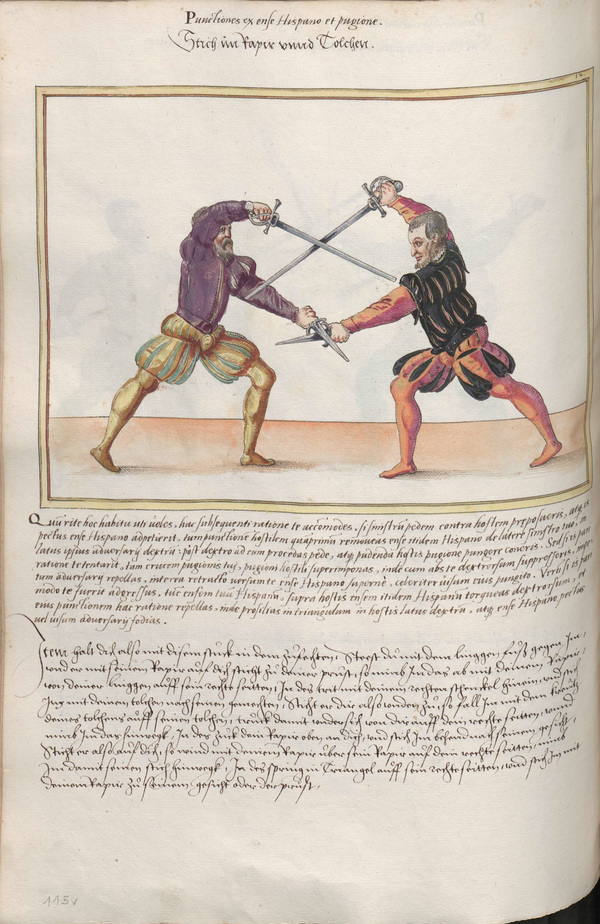 Punctiones ex ense Hispano et pugione.
Stich im Rapir unnd Tolchen.
Quum rite hoc habitu uti voles, hac subsequenti ratione te accomodes, si sinistrum pedem contra hostem praeposueris, atq is
pectus ense Hispano adpetierit, tum punctionem hostilem quaprimum removeas ense itidem Hispano de latere sinistro tuo, in
latus ipsius adversarij dextrum: post dextro ad eum procedas pede, atq pudenda hostis pugione pungere coneris. Sed si is pari
ratione te tentarit, tam crucem pugionis tui, pugioni hostili superimponas, inde eum abs te dextrorsum suppresseris,
tum adversarij repellas, interea retracto versum te ense Hispano superne, celeriter visum eius pungito. Verum si is pari
modo te fuerit adgressus, tuc ensem tuum Hispanum, supra hostis ensem itidem Hispanum torqueas dextrorsum, et
eius punctionem hac ratione repellas, inde prosilias in triangulum in hostis latus dextrum, atq ense Hispano pectus
vel visum adversarij fodias.
Item halt dich also mit disem stuck in dem zufechten, Steest du mit dem linggen fuoß gegen Im,
und er mit seinem Rapir auf dich sticht zu deiner prust, so nimb Im das ab mit deinem Rapir,
von deiner linggen auff sein rechte seitten, In des trit mit deinem rechten schenckel hinein, und stich
Ing mit deinem tolchen nach seinen gemechten, Sticht er dir also unden zu, so fall Im mit dem kreitz
deines tolchens auff seinen tolchen, truck damit undersich von dir auff dein rechte seitten, unnd
nimb Im das hinwegk, In des zuck dein Rapir oben an dich, und stich Im behendt nach seinem gesicht,
Sticht er also auf dich, so wind mit deinem Rapir über sein Rapir auf dein rechte seitten, nimb
Im damit seinen stich hinwegk, In des spring in Triangel auff sein rechte seitten, und stich Im mit
deinem Rapir zu seinem gesicht oder der prust.
115v